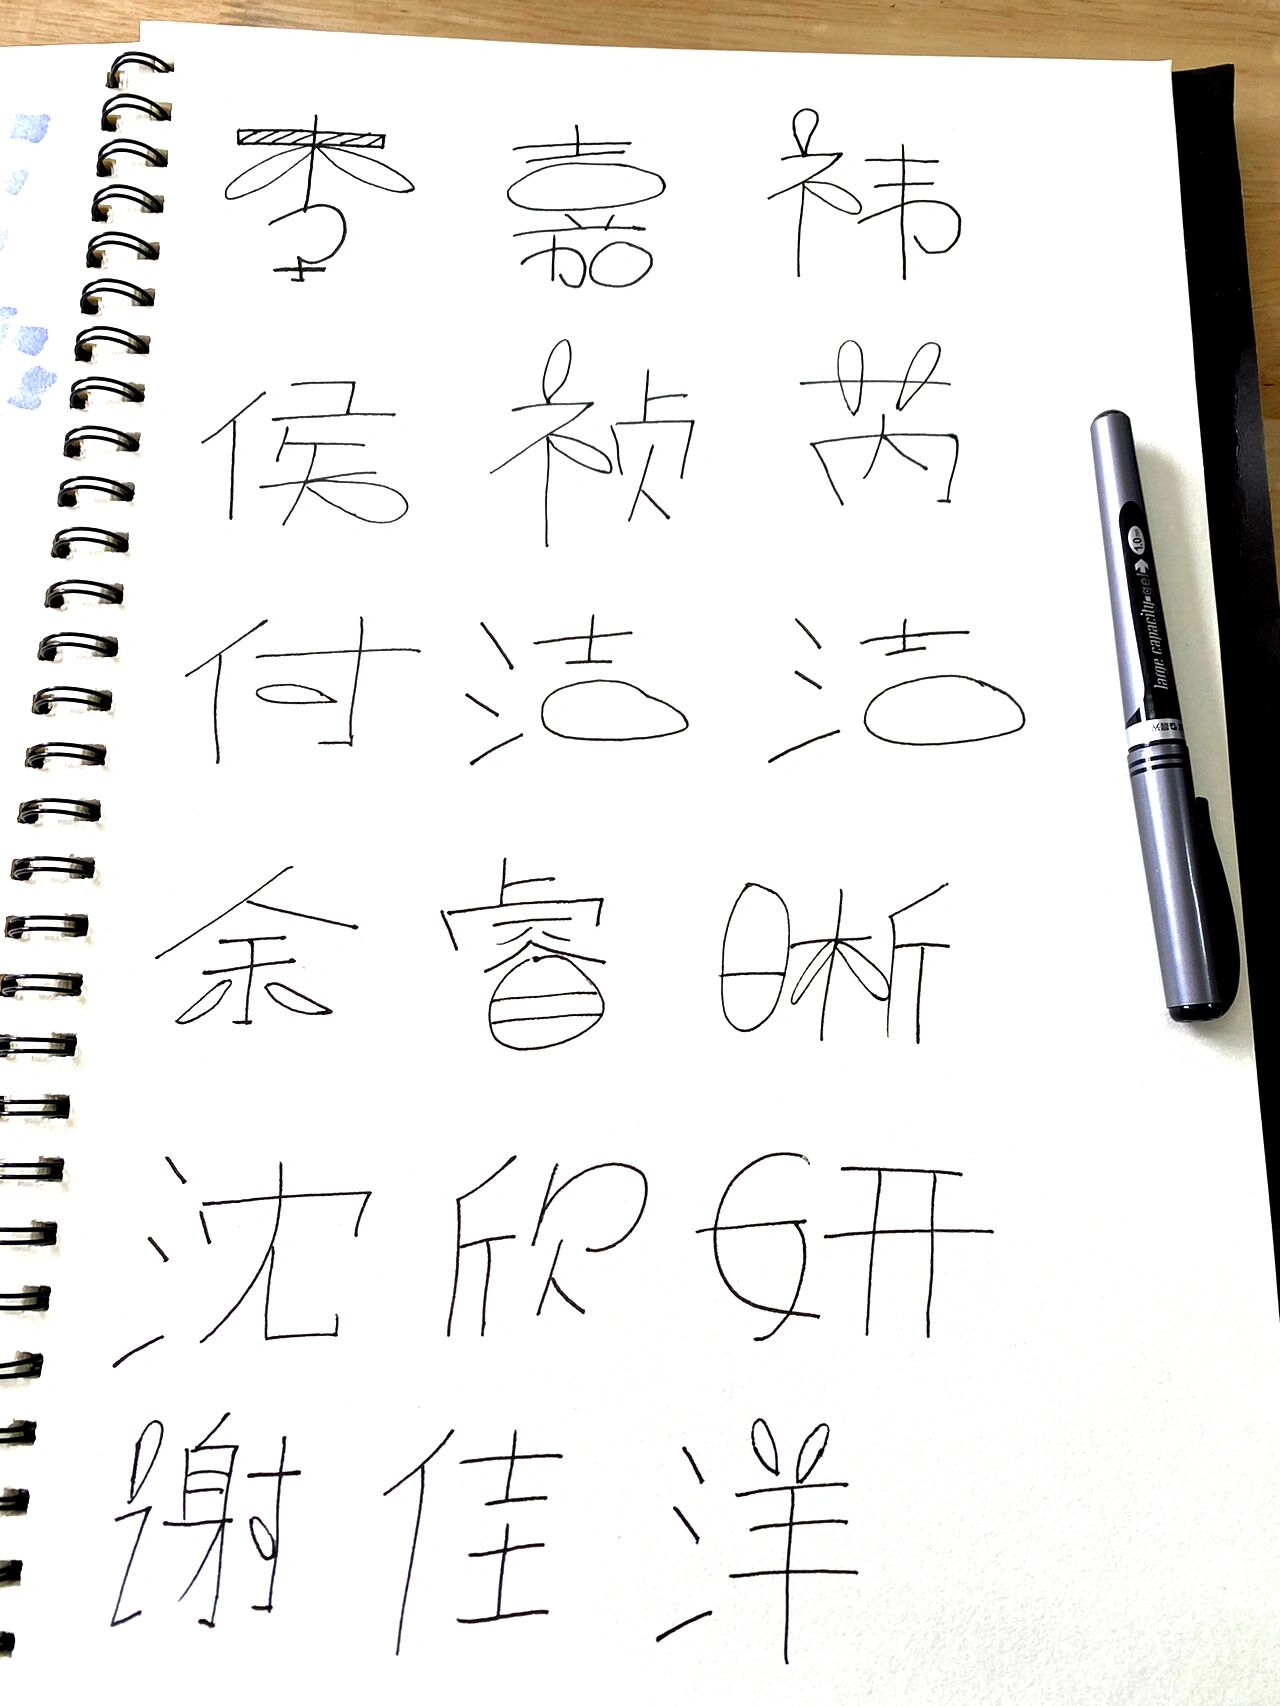 李嘉祎
侯祯芮
付洁洁
余睿晰
沈欣妍
谢佳洋
large capacity gel 1.0